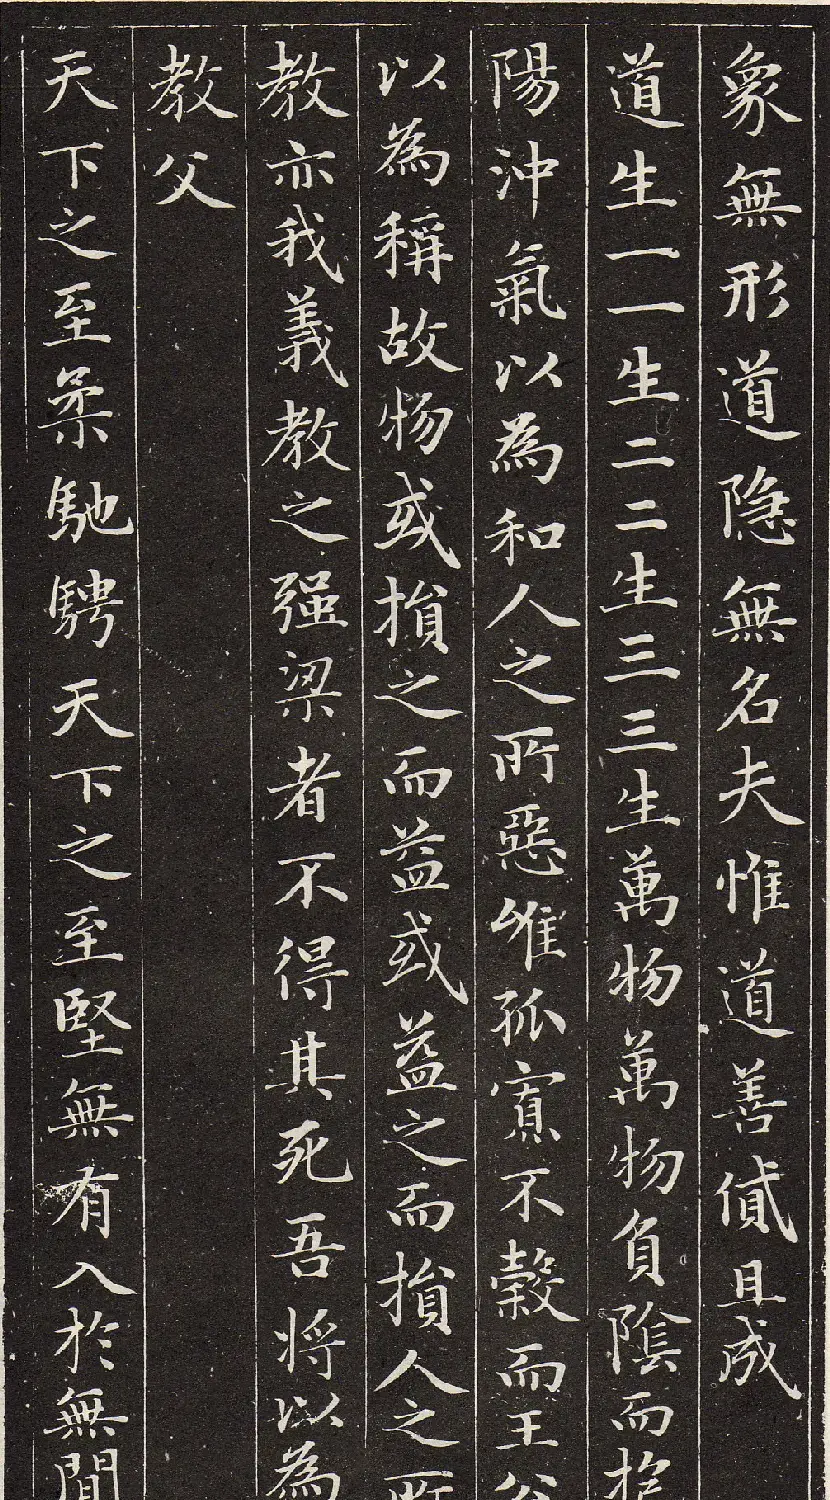 象無形道隐無名夫惟道善貸且成
道生一一生二二生三三生萬物萬物負陰而抱
陽沖氣以為和人之所惡唯孤寡不穀而王公
以為稱故物或損之而益或益之而損人之所
教亦我義教之强梁者不得其死吾將以為
教父
天下之至柔馳騁天下之至堅無有入於無間